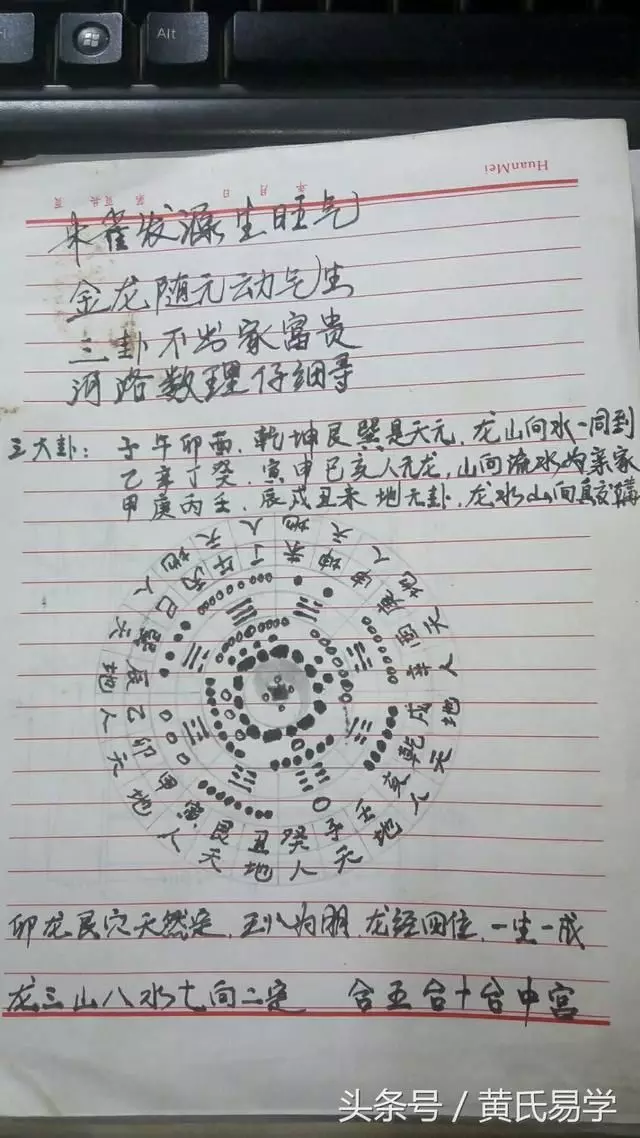 Alt
HuanMei
年 月 日
第 页 共 页
朱雀发源生旺气
金龙随元动气生
三卦不出家富贵
河路数理仔细寻
三大卦：子午卯酉，乾坤艮巽是天元，龙山向水一同到
乙辛丁癸，寅申巳亥人元龙，山向流水为亲家
甲庚丙壬，辰戌丑未 地元卦，龙水山向真
天 地 人 天 地 人 天 地 人 天 地 人 天 地 人 天 地 人 天 地 人 天 地 人
午 丁 未 坤 申 庚 酉 辛 戌 乾 亥 壬 子 癸 丑 艮 寅 甲 卯 乙 辰 巽 巳 丙
卯龙艮穴天然定，三八为朋，龙经四位，一生一成
龙三山八水七向二定 合五合十合中宫
头条号 / 黄氏易学